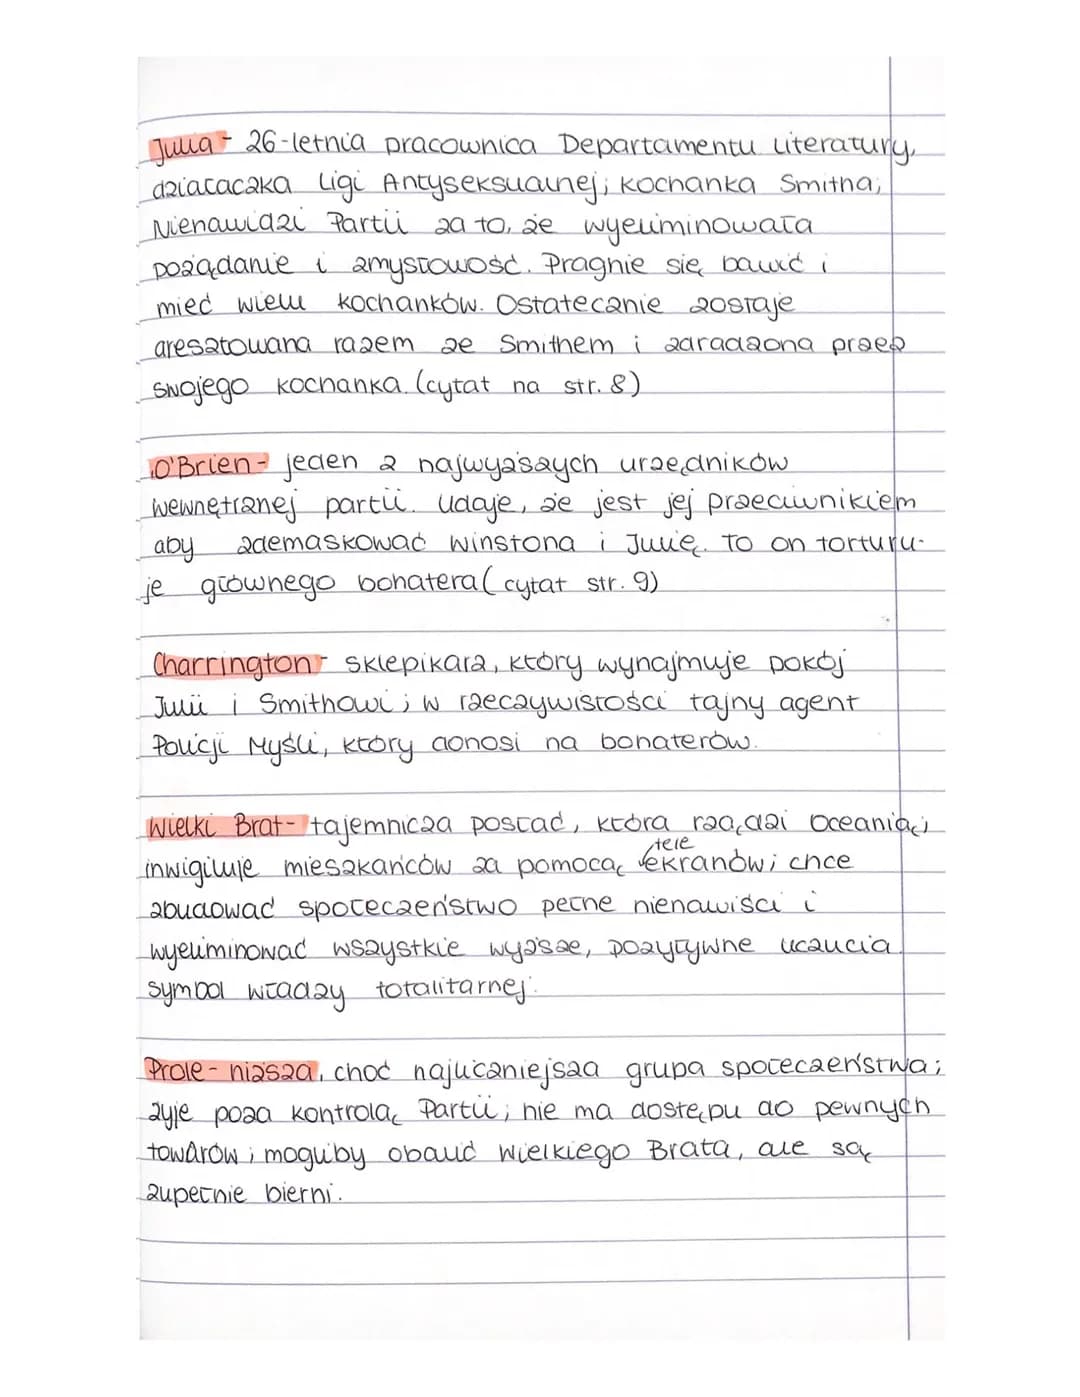 Julia - 26-letnia pracownica Departamentu Literatury,
działaczka Ligi Antyseksualnej; kochanka Smitha;
Nienawidzi Partii za to, że wyeliminowała
pożądanie i zmysłowość. Pragnie się bawić i
mieć wielu kochanków. Ostatecznie zostaje
aresztowana razem ze Smithem i zdradzona przez
swojego kochanka. (cytat na str. 8)
O'Brien - jeden z najwyższych urzędników
wewnętrznej partii. Udaje, że jest jej przeciwnikiem
aby zdemaskować Winstona i Julię. To on torturu-
je głównego bohatera (cytat str. 9)
Charrington - sklepikarz, który wynajmuje pokój
Julii i Smithowi; w rzeczywistości tajny agent
Policji Myśli, który donosi na bohaterów.
Wielki Brat - tajemnicza postać, która rządzi Oceanią;
inwigiluje mieszkańców za pomocą teleekranów; chce
zbudować społeczeństwo pełne nienawiści i
wyeliminować wszystkie wyższe, pozytywne uczucia.
symbol władzy totalitarnej.
Prole - niższa, choć najliczniejsza grupa społeczeństwa;
żyje poza kontrolą Partii; nie ma dostępu do pewnych
towarów; mogliby obalić Wielkiego Brata, ale są
zupełnie bierni.